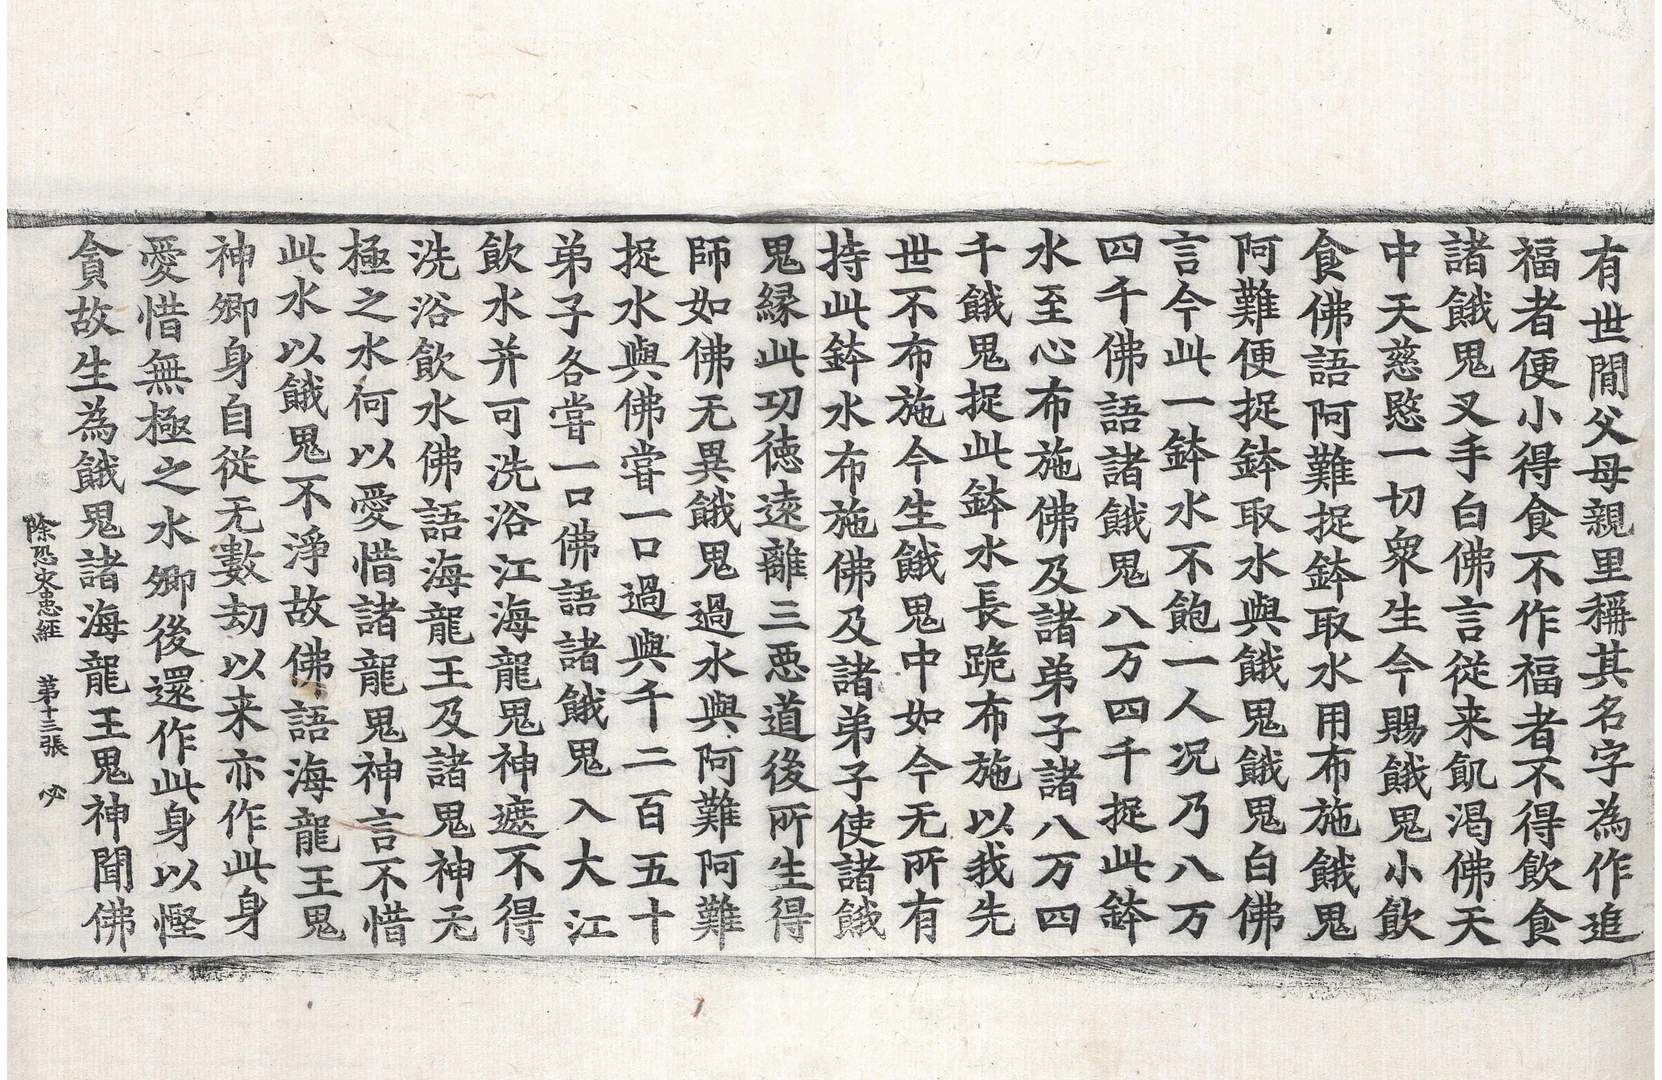 有世閒父母親里稱其名字為作追
福者便小得食不作福者不得飲食
諸餓鬼叉手白佛言從来飢渴佛天
中天慈愍一切衆生今賜餓鬼小飲
食佛語阿難捉鉢取水用布施餓鬼
阿難便捉鉢取水與餓鬼餓鬼白佛
言今此一鉢水不飽一人况乃八万
四千佛語諸餓鬼八万四千捉此鉢
水至心布施佛及諸弟子諸八万四
千餓鬼捉此鉢水長跪布施以我先
世不布施今生餓鬼中如今无所有
持此鉢水布施佛及諸弟子使諸餓
鬼縁此功德遠離三惡道後所生得
師如佛无異餓鬼過水與阿難阿難
捉水與佛嘗一口過與千二百五十
弟子各嘗一口佛語諸餓鬼入大江
飲水并可洗浴江海龍鬼神遮不得
洗浴飲水佛語海龍王及諸鬼神无
極之水何以愛惜諸龍鬼神言不惜
此水以餓鬼不淨故佛語海龍王鬼
神卿身自従无數劫以来亦作此身
愛惜無極之水卿後還作此身以慳
貪故生為餓鬼諸海龍王鬼神聞佛
除恐灾患經 第十三張 必